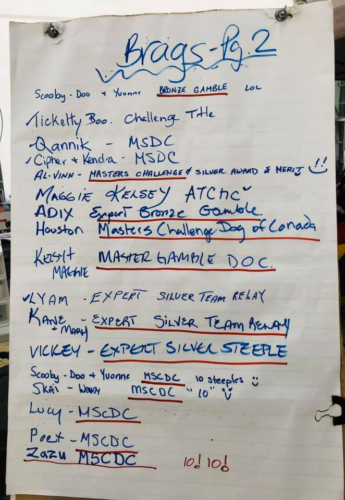 Brags - Pg. 2
Scooby-Doo + Yvonne BRONZE GAMBLE LOL
Ticketty Boo. Challenge Title
Qannik - MSDC
Cipher & Kendra - MSDC
AL-VINN - MASTERS CHALLENGE & SILVER AWARD & MERIT
MAGGIE KELSEY ATCHC
ADIX Expert Bronze Gamble
Houston Masters Challenge Dog of Canada
MAGGIE MASTER GAMBLE D.O.C.
LYAM - EXPERT SILVER TEAM RELAY
KANE + Mary - EXPERT SILVER TEAM RELAY
VICKEY - EXPERT SILVER STEEPLE
Scooby-Doo + Yvonne MSCDC 10 steeples
Skai - MSCDC "10"
Lucy - MSCDC
Poet - MSCDC
Zazu MSCDC 10! 10!